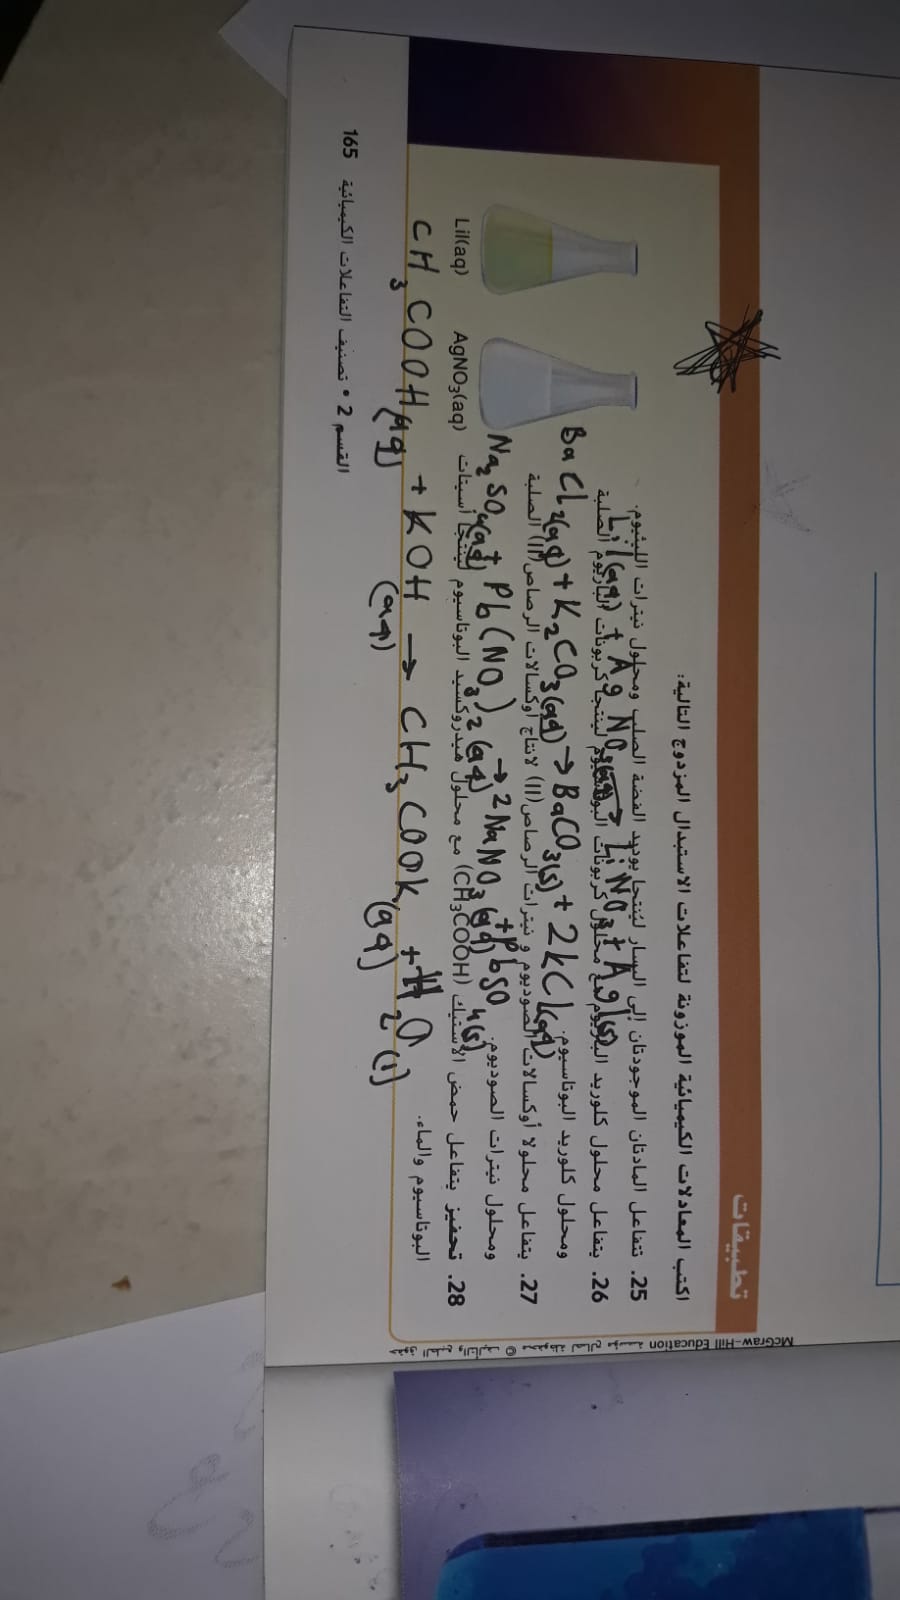 تطبيقات
اكتب المعادلات الكيميائية الموزونة لتفاعلات الاستبدال المزدوج التالية:
25. تتفاعل المادتان الموجودتان إلى اليسار لينتجا يوديد الفضة الصلب ومحلول نيترات الليثيوم.
LiI(aq) + AgNO3(aq) → LiNO3 + AgI(s)
26. يتفاعل محلول كلوريد الباريوم مع محلول كربونات البوتاسيوم لينتجا كربونات الباريوم الصلبة
ومحلول كلوريد البوتاسيوم.
BaCl2(aq) + K2CO3(aq) → BaCO3(s) + 2KCl(aq)
27. يتفاعل محلولا أوكسالات الصوديوم و نيترات الرصاص(II) لانتاج أوكسالات الرصاص(II) الصلبة
ومحلول نيترات الصوديوم.
Na2SO4(aq) + Pb(NO3)2(aq) → 2NaNO3(aq) + PbSO4(s)
28. تحفيز يتفاعل حمض الأستيك (CH3COOH) مع محلول هيدروكسيد البوتاسيوم لينتجا أسيتات
البوتاسيوم والماء.
CH3COOH(aq) + KOH(aq) → CH3COOK(aq) + H2O(l)
LiI(aq) AgNO3(aq)
القسم 2 • تصنيف التفاعلات الكيميائية 165
McGraw-Hill Education